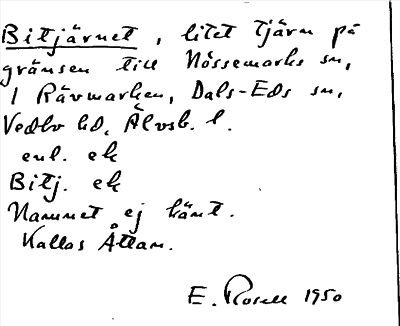 Bitjärnet, litet tjärn på
gränsen till Nössemarks sn,
I Rävmarken, Dals-Eds sn,
Vedbo hd, Älvsb. l.
enl. ek
Bitj. ek
Namnet ej känt.
Kallas Åttan.
E. Rosell 1950